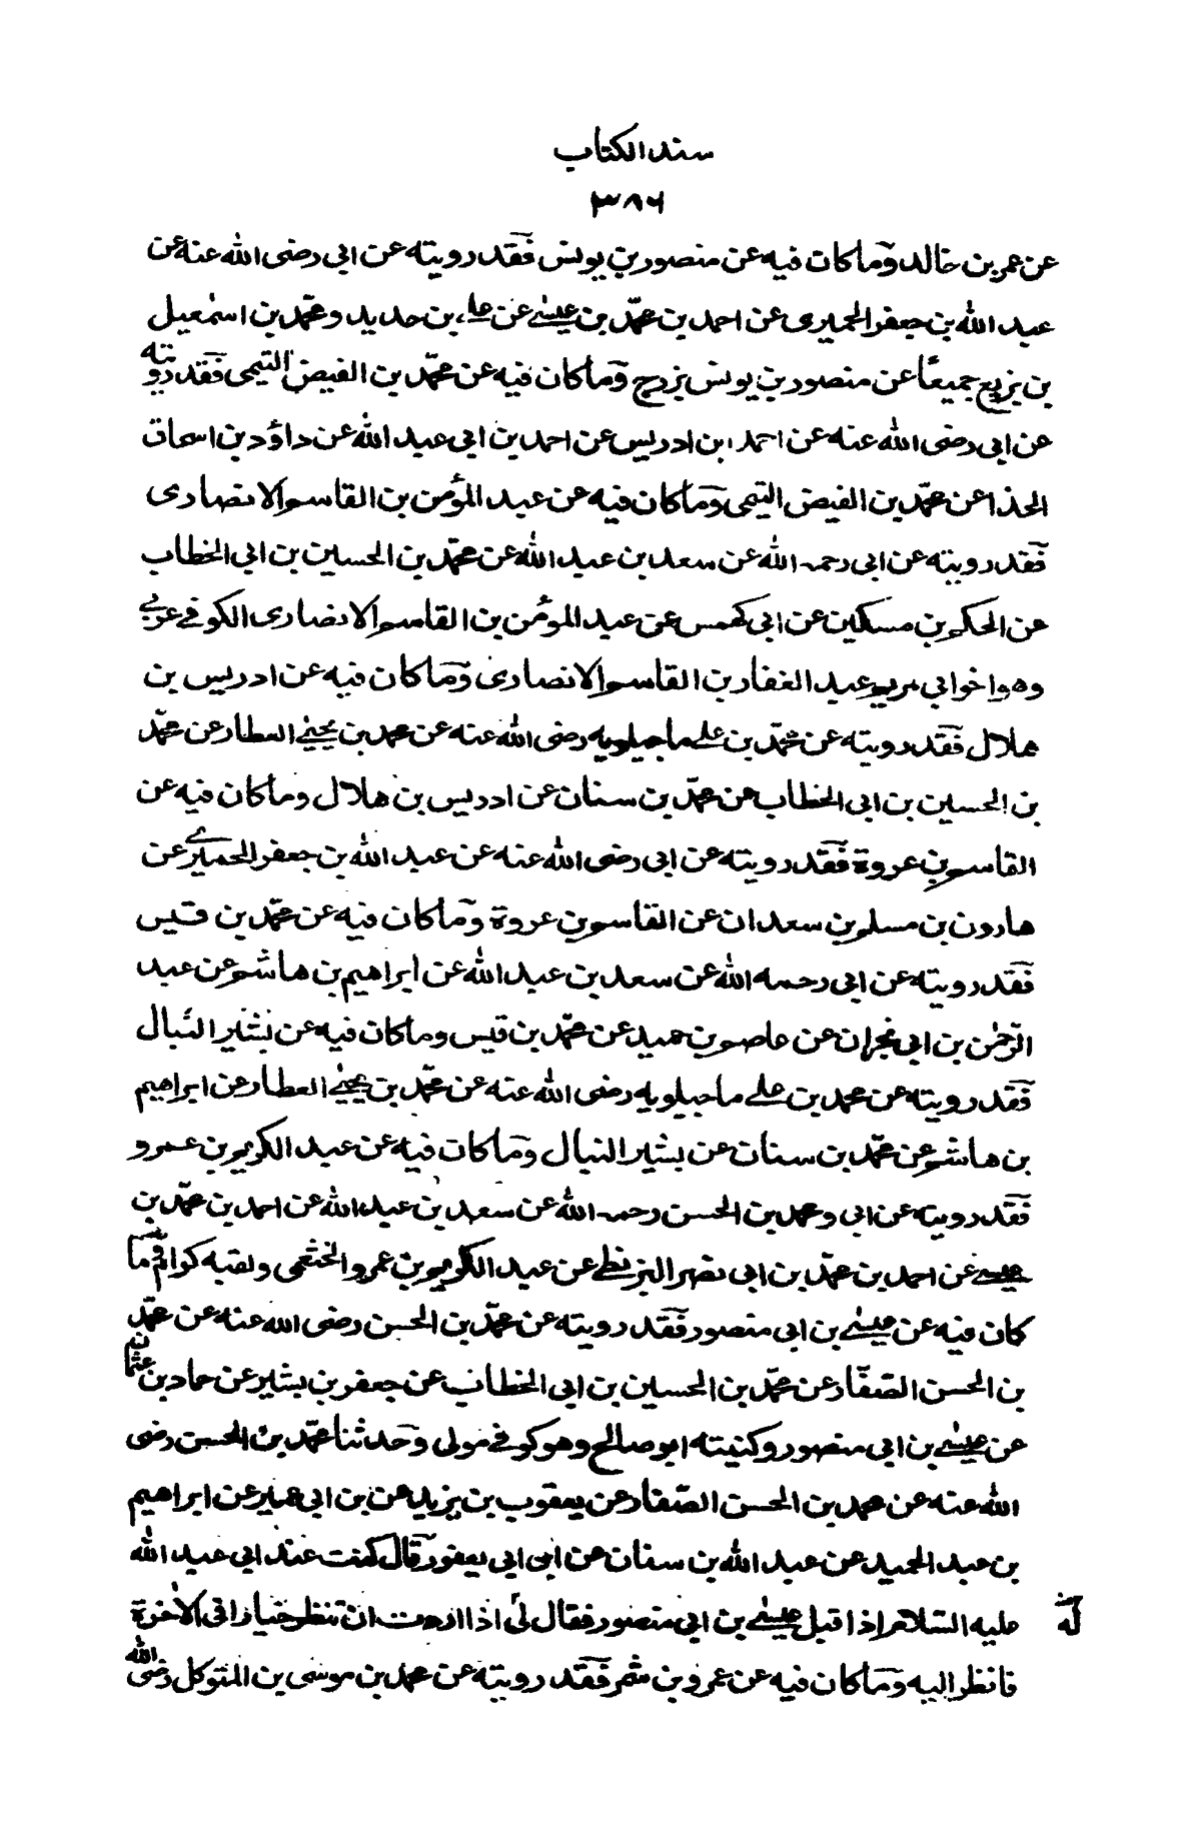 سند الكتاب
٣٨٦
عن عمر بن خالد وما كان فيه عن منصور بن يونس فقد رويته عن ابي رضى الله عنه عن
عبد الله بن جعفر الحميرى عن احمد بن محمّد بن عيسى عن على بن حديد ومحمّد بن اسمعيل
بن بزيع جميعًا عن منصور بن يونس بزرج وما كان فيه عن محمّد بن الفيض التيمى فقد رويته
عن ابى رضى الله عنه عن احمد ابن ادريس عن احمد بن ابي عبد الله عن داؤد بن اسحاق
الحذا عن محمّد بن الفيض التيمى وما كان فيه عن عبد المؤمن بن القاسم الانصارى
فقد رويته عن ابى رحمه الله عن سعد بن عبد الله عن محمّد بن الحسين بن ابي الخطاب
عن الحكم بن مسكين عن ابى كهمس عن عبد المؤمن بن القاسم الانصارى الكوفى عربى
وهو اخو ابي مريم عبد الغفار بن القاسم الانصارى وما كان فيه عن ادريس بن
هلال فقد رويته عن محمّد بن على ماجيلويه رضى الله عنه عن محمد بن يحيى العطار عن محمّد
بن الحسين بن ابى الخطاب عن محمّد بن سنان عن ادريس بن هلال وما كان فيه عن
القاسم بن عروة فقد رويته عن ابى رضى الله عنه عن عبد الله بن جعفر الحميرى عن
هارون بن مسلم بن سعدان عن القاسم بن عروة وما كان فيه عن محمّد بن قيس
فقد رويته عن ابى رحمه الله عن سعد بن عبد الله عن ابراهيم بن هاشم عن عبد
الرّحمٰن بن ابى نجران عن عاصم بن حميد عن محمّد بن قيس وما كان فيه عن بشير النبال
فقد رويته عن محمد بن على ماجيلويه رضى الله عنه عن محمّد بن يحيى العطار عن ابراهيم
بن هاشم عن محمّد بن سنان عن بشير النبال وما كان فيه عن عبد الكريم بن عمرو
فقد رويته عن ابى ومحمد بن الحسن رحمه الله عن سعد بن عبد الله عن احمد بن محمّد بن
عيسى عن احمد بن محمّد بن ابى نصر البزنطى عن عبد الكريم بن عمرو الخثعمى ولقبه كرام وما
كان فيه عن عيسى بن ابى منصور فقد رويته عن محمّد بن الحسن رضى الله عنه عن محمّد
بن الحسن الصّفّار عن محمّد بن الحسين بن ابى الخطاب عن جعفر بن بشير عن حماد بن عثمان
عن عيسى بن ابى منصور وكنيته ابو صالح وهو كوفى مولى وحدثنا محمّد بن الحسن رضى
الله عنه عن محمد بن الحسن الصّفار عن يعقوب بن يزيد عن بن ابى عمير عن ابراهيم
بن عبد الحميد عن عبد الله بن سنان عن ابن ابى يعفور قال كنت عند ابى عبد الله
عليه السّلام اذا قبل عيسى بن ابى منصور فقال لى اذا اردت ان تنظر خيارا فى الاخرة
فانظر اليه وما كان فيه عن عمرو بن شمر فقد رويته عن محمد بن موسى بن المتوكل رضى الله
له